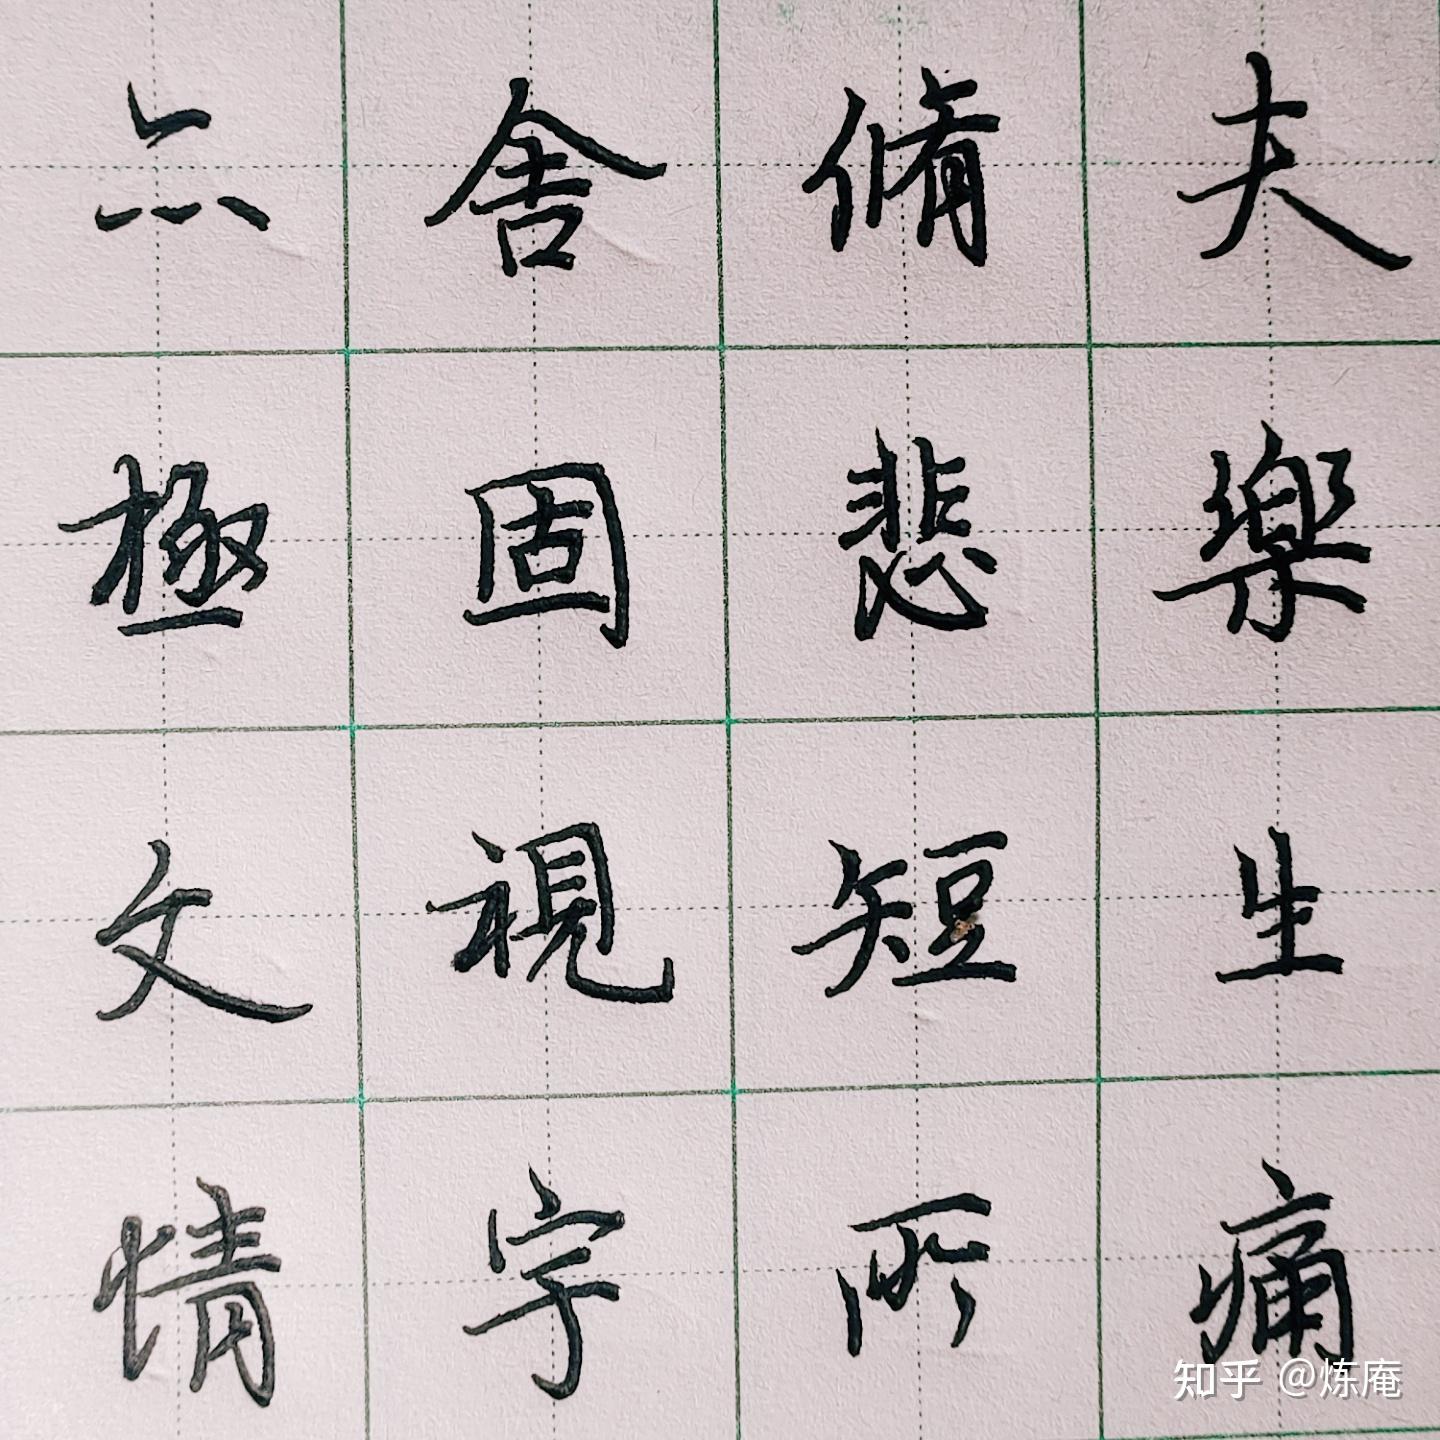 夫樂生痛
脩悲短所
舍固視字
亦極文情
知乎 @炼庵